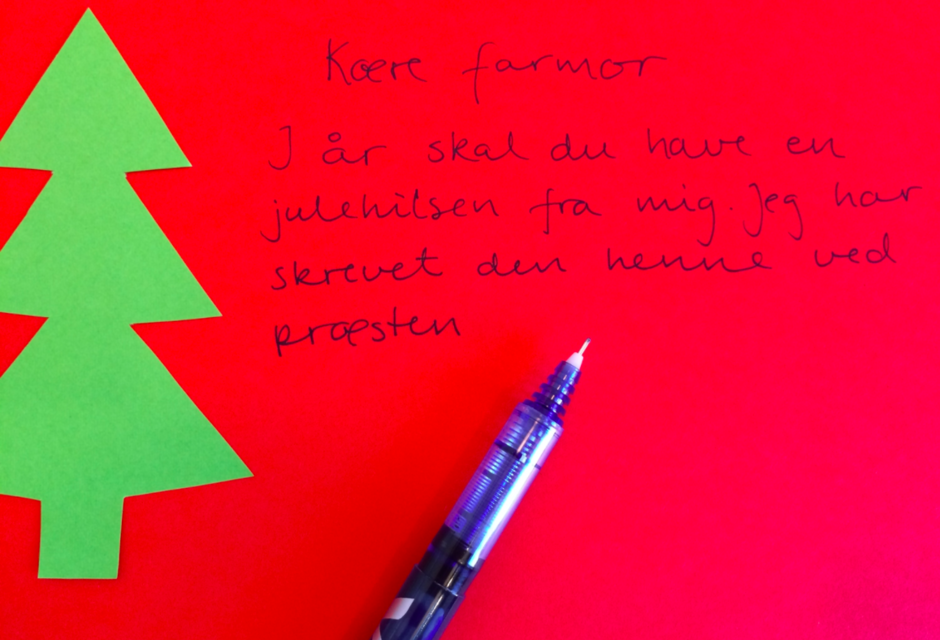 Kære farmor
I år skal du have en
julehilsen fra mig. Jeg har
skrevet den henne ved
præsten